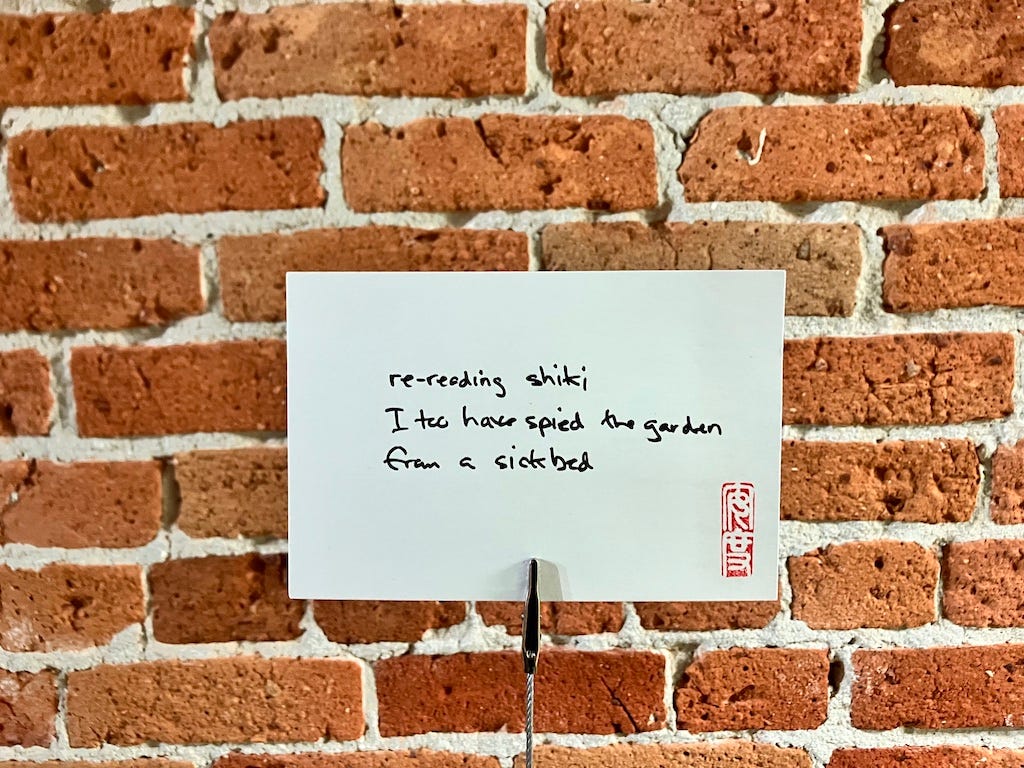 re-reading shiki
I too have spied the garden
from a sickbed